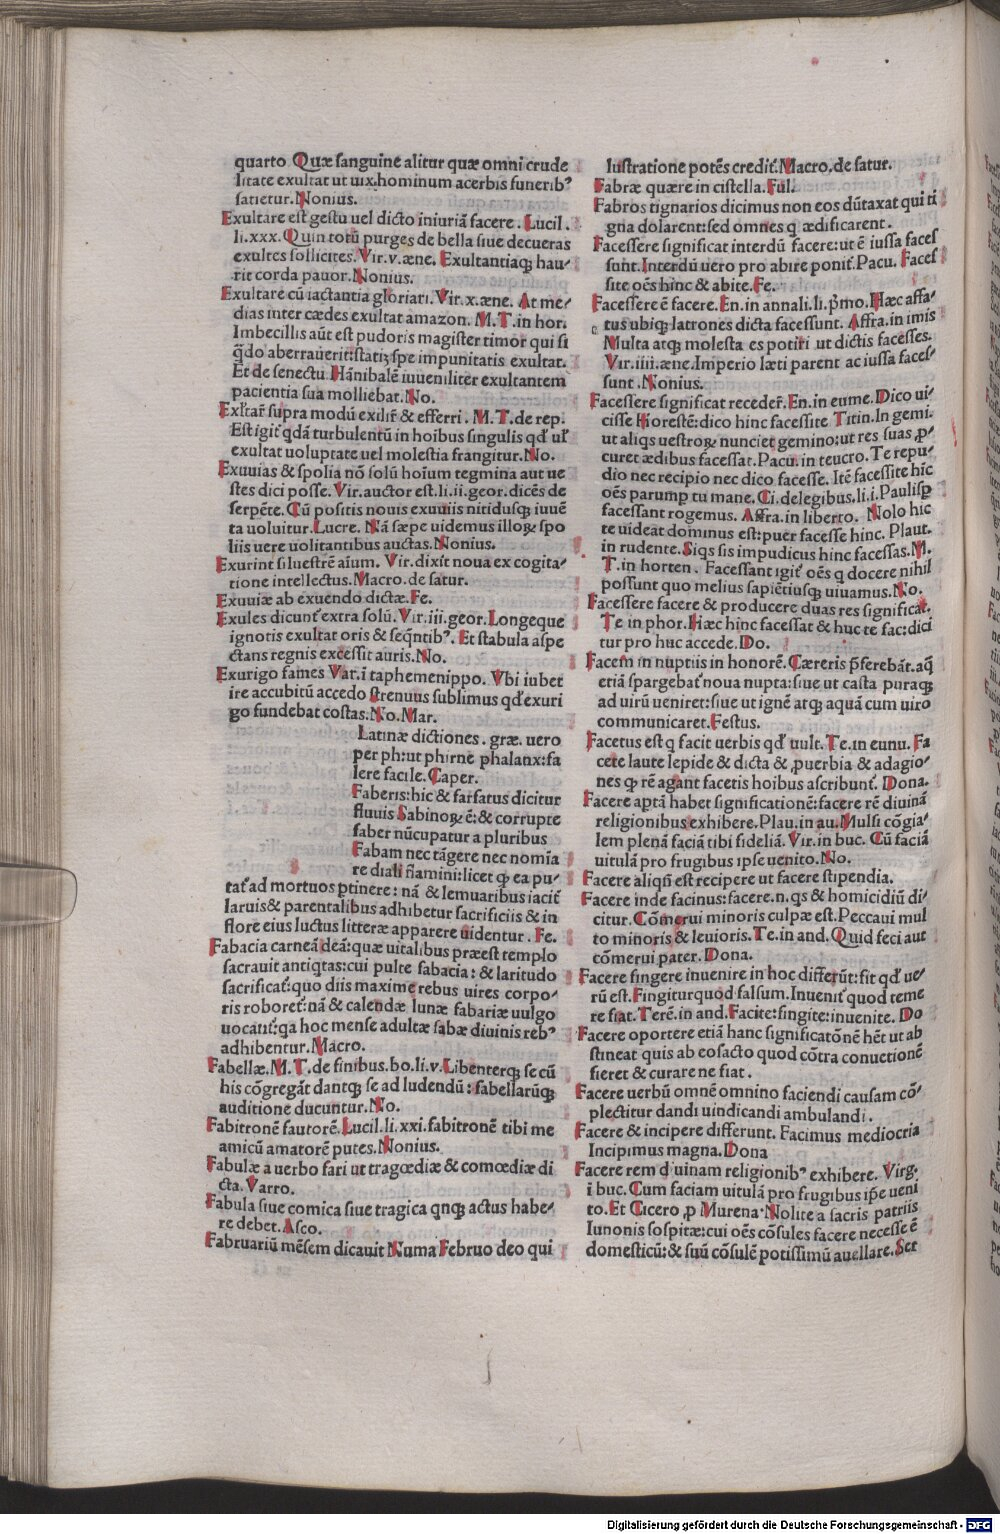 quarto Quæ sanguine alitur quæ omni crude
litate exultat ut uix hominum acerbis funeribꝰ
satietur. Nonius.
Exultare est gestu uel dicto iniuriā facere. Lucil.
li.xxx. Quin totū purges de bella siue decueras
exultes sollicites. Vir.v.æne. Exultantiaqꝫ hau-
rit corda pauor. Nonius.
Exultare cū iactantia gloriari. Vir.x.æne. At me-
dias inter cædes exultat amazon. M.T.in hor.
Imbecillis aūt est pudoris magister timor qui si
q̄do aberrauerit:statiʒ spe impunitatis exultat.
Et de senectu. Hānibalē iuueniliter exultantem
pacientia sua molliebat. No.
Exl̄tar̄ supra modū exilir̄ & efferri. M.T.de rep.
Est igit̄ qdā turbulentū in hoibus singulis qd̄ ul̄
exultat uoluptate uel molestia frangitur. No.
Exuuias & spolia nō solū hoīum tegmina aut ue
stes dici posse. Vir.auctor est.li.ii.geor.dicēs de
serpēte. Cū positis nouis exuuiis nitidusqꝫ iuuē
ta uoluitur. Lucre. Nā sæpe uidemus illoꝝ spo
liis uere uolitantibus auctas. Nonius.
Exurint siluestrē aīum. Vir.dixit noua ex cogita-
tione intellectus. Macro.de satur.
Exuuiæ ab exuendo dictæ. Fe.
Exules dicunt̄ extra solū. Vir.iii.geor. Longeque
ignotis exultat oris & seqntibꝰ. Et stabula aspe
ctans regnis excessit auris. No.
Exurigo fames Var.i taphemenippo. Vbi iubet
ire accubitū accedo strenuus sublimus qd̄ exuri
go fundebat costas. No. Mar.
Latinæ dictiones. græ. uero
per ph:ut phirne phalanx:fa
lere facile. Caper.
Faberis:hic & farfatus dicitur
fluuis Sabinoꝝ ē:& corrupte
faber nūcupatur a pluribus
Fabam nec tāgere nec nomīa
re diali flamini:licet ꝙ ea pu-
tat̄ ad mortuos ptinere: nā & lemuaribus iacit̄
laruis & parentalibus adhibetur sacrificiis & in
flore eius luctus litteræ apparere uidentur. Fe.
Fabacia carneā deā:quæ uitalibus præest templo
sacrauit antiqtas:cui pulte fabacia: & laritudo
sacrificat̄:quo diis maxime rebus uires corpo-
ris roboret̄:nā & calendæ lunæ fabariæ uulgo
uocant̄:qa hoc mense adultæ fabæ diuinis rebꝰ
adhibentur. Macro.
Fabellæ. M.T.de finibus.bo.li.v. Libenterqꝫ se cū
his cōgregāt dantqꝫ se ad ludendū: fabellarūqꝫ
auditione ducuntur. No.
Fabitronē fautorē. Lucil.li.xxi.fabitronē tibi me
amicū amatorē putes. Nonius.
Fabulæ a uerbo fari ut tragœdiæ & comœdiæ di
ctæ. Varro.
Fabula siue comica siue tragica qnqꝫ actus habe-
re debet. Asco.
Fabruariū mēsem dicauit Numa Februo deo qui
lustratione potēs credit̄. Macro.de satur.
Fabræ quære in cistella. Ful.
Fabros tignarios dicimus non eos dūtaxat qui ti
gna dolarent:sed omnes q ædificarent.
Facessere significat interdū facere:ut ē iussa faces
sunt. Interdū uero pro abire ponit̄. Pacu. Faces
site oēs hinc & abite. Fe.
Facessere ē facere. En.in annali.li.p̄mo. Hæc affa-
tus ubiqꝫ latrones dicta facessunt. Affra.in imis
Multa atqꝫ molesta es potiri ut dictis facesses.
Vir.iiii.æne. Imperio læti parent ac iussa faces-
sunt. Nonius.
Facessere significat receder̄. En.in eume. Dico ui-
cisse Horestē:dico hinc facessite Titin. In gemi.
ut aliqs uestroꝝ nunciet gemino:ut res suas ꝓ-
curet ædibus facessat. Pacu.in teucro. Te repu-
dio nec recipio nec dico facesse. Itē facessite hic
oēs parump tu mane. Ci.de legibus.li.i. Paulisp
facessant rogemus. Affra.in liberto. Nolo hic
te uideat dominus est:puer facesse hinc. Plaut.
in rudente. Siqs sis impudicus hinc facessas. M.
T.in horten. Facessant igit̄ oēs q docere nihil
possunt quo melius sapiētiusqꝫ uiuamus. No.
Facessere facere & producere duas res significat̄.
Te in phor. Hæc hinc facessat & huc te fac:dici
tur pro huc accede. Do.
Facem in nuptiis in honorē. Cæreris p̄ferebāt.aq̄
etiā spargebat̄ noua nupta:siue ut casta puraqꝫ
ad uirū ueniret:siue ut ignē atqꝫ aquā cum uiro
communicaret. Festus.
Facetus est q facit uerbis qd̄ uult. Te.in eunu. Fa
cete laute lepide & dicta & ꝓuerbia & adagio-
nes ꝙ rē agant facetis hoibus ascribunt̄. Dona.
Facere aptā habet significationē:facere rē diuinā
religionibus exhibere. Plau.in au. Mulsi cōgia-
lem plenā faciā tibi fideliā. Vir.in buc. Cū faciā
uitulā pro frugibus ipse uenito. No.
Facere aliqñ est recipere ut facere stipendia.
Facere inde facinus:facere.n.qs & homicidiū di-
citur. Cōmerui minoris culpæ est. Peccaui mul
to minoris & leuioris. Te.in and. Quid feci aut
cōmerui pater. Dona.
Facere fingere inuenire in hoc differūt:fit qd̄ ue-
rū est. Fingitur quod falsum. Inuenit̄ quod teme
re fiat. Terē.in and. Facite:fingite:inuenite. Do
Facere oportere etiā hanc significatōnē hēt ut ab
stineat quis ab eo facto quod cōtra conuetionē
fieret & curare ne fiat.
Facere uerbū omnē omnino faciendi causam cō-
plectitur dandi uindicandi ambulandi.
Facere & incipere differunt. Facimus mediocria
Incipimus magna. Dona
Facere rem diuinam religionibꝰ exhibere. Virg.
i buc. Cum faciam uitulā pro frugibus ip̄e ueni
to. Et Cicero ꝓ Murena. Nolite a sacris patriis
Iunonis sospitæ:cui oēs cōsules facere necesse ē
domesticū:& suū cōsulē potissimū auellare. Set
Digitalisierung gefördert durch die Deutsche Forschungsgemeinschaft - DFG